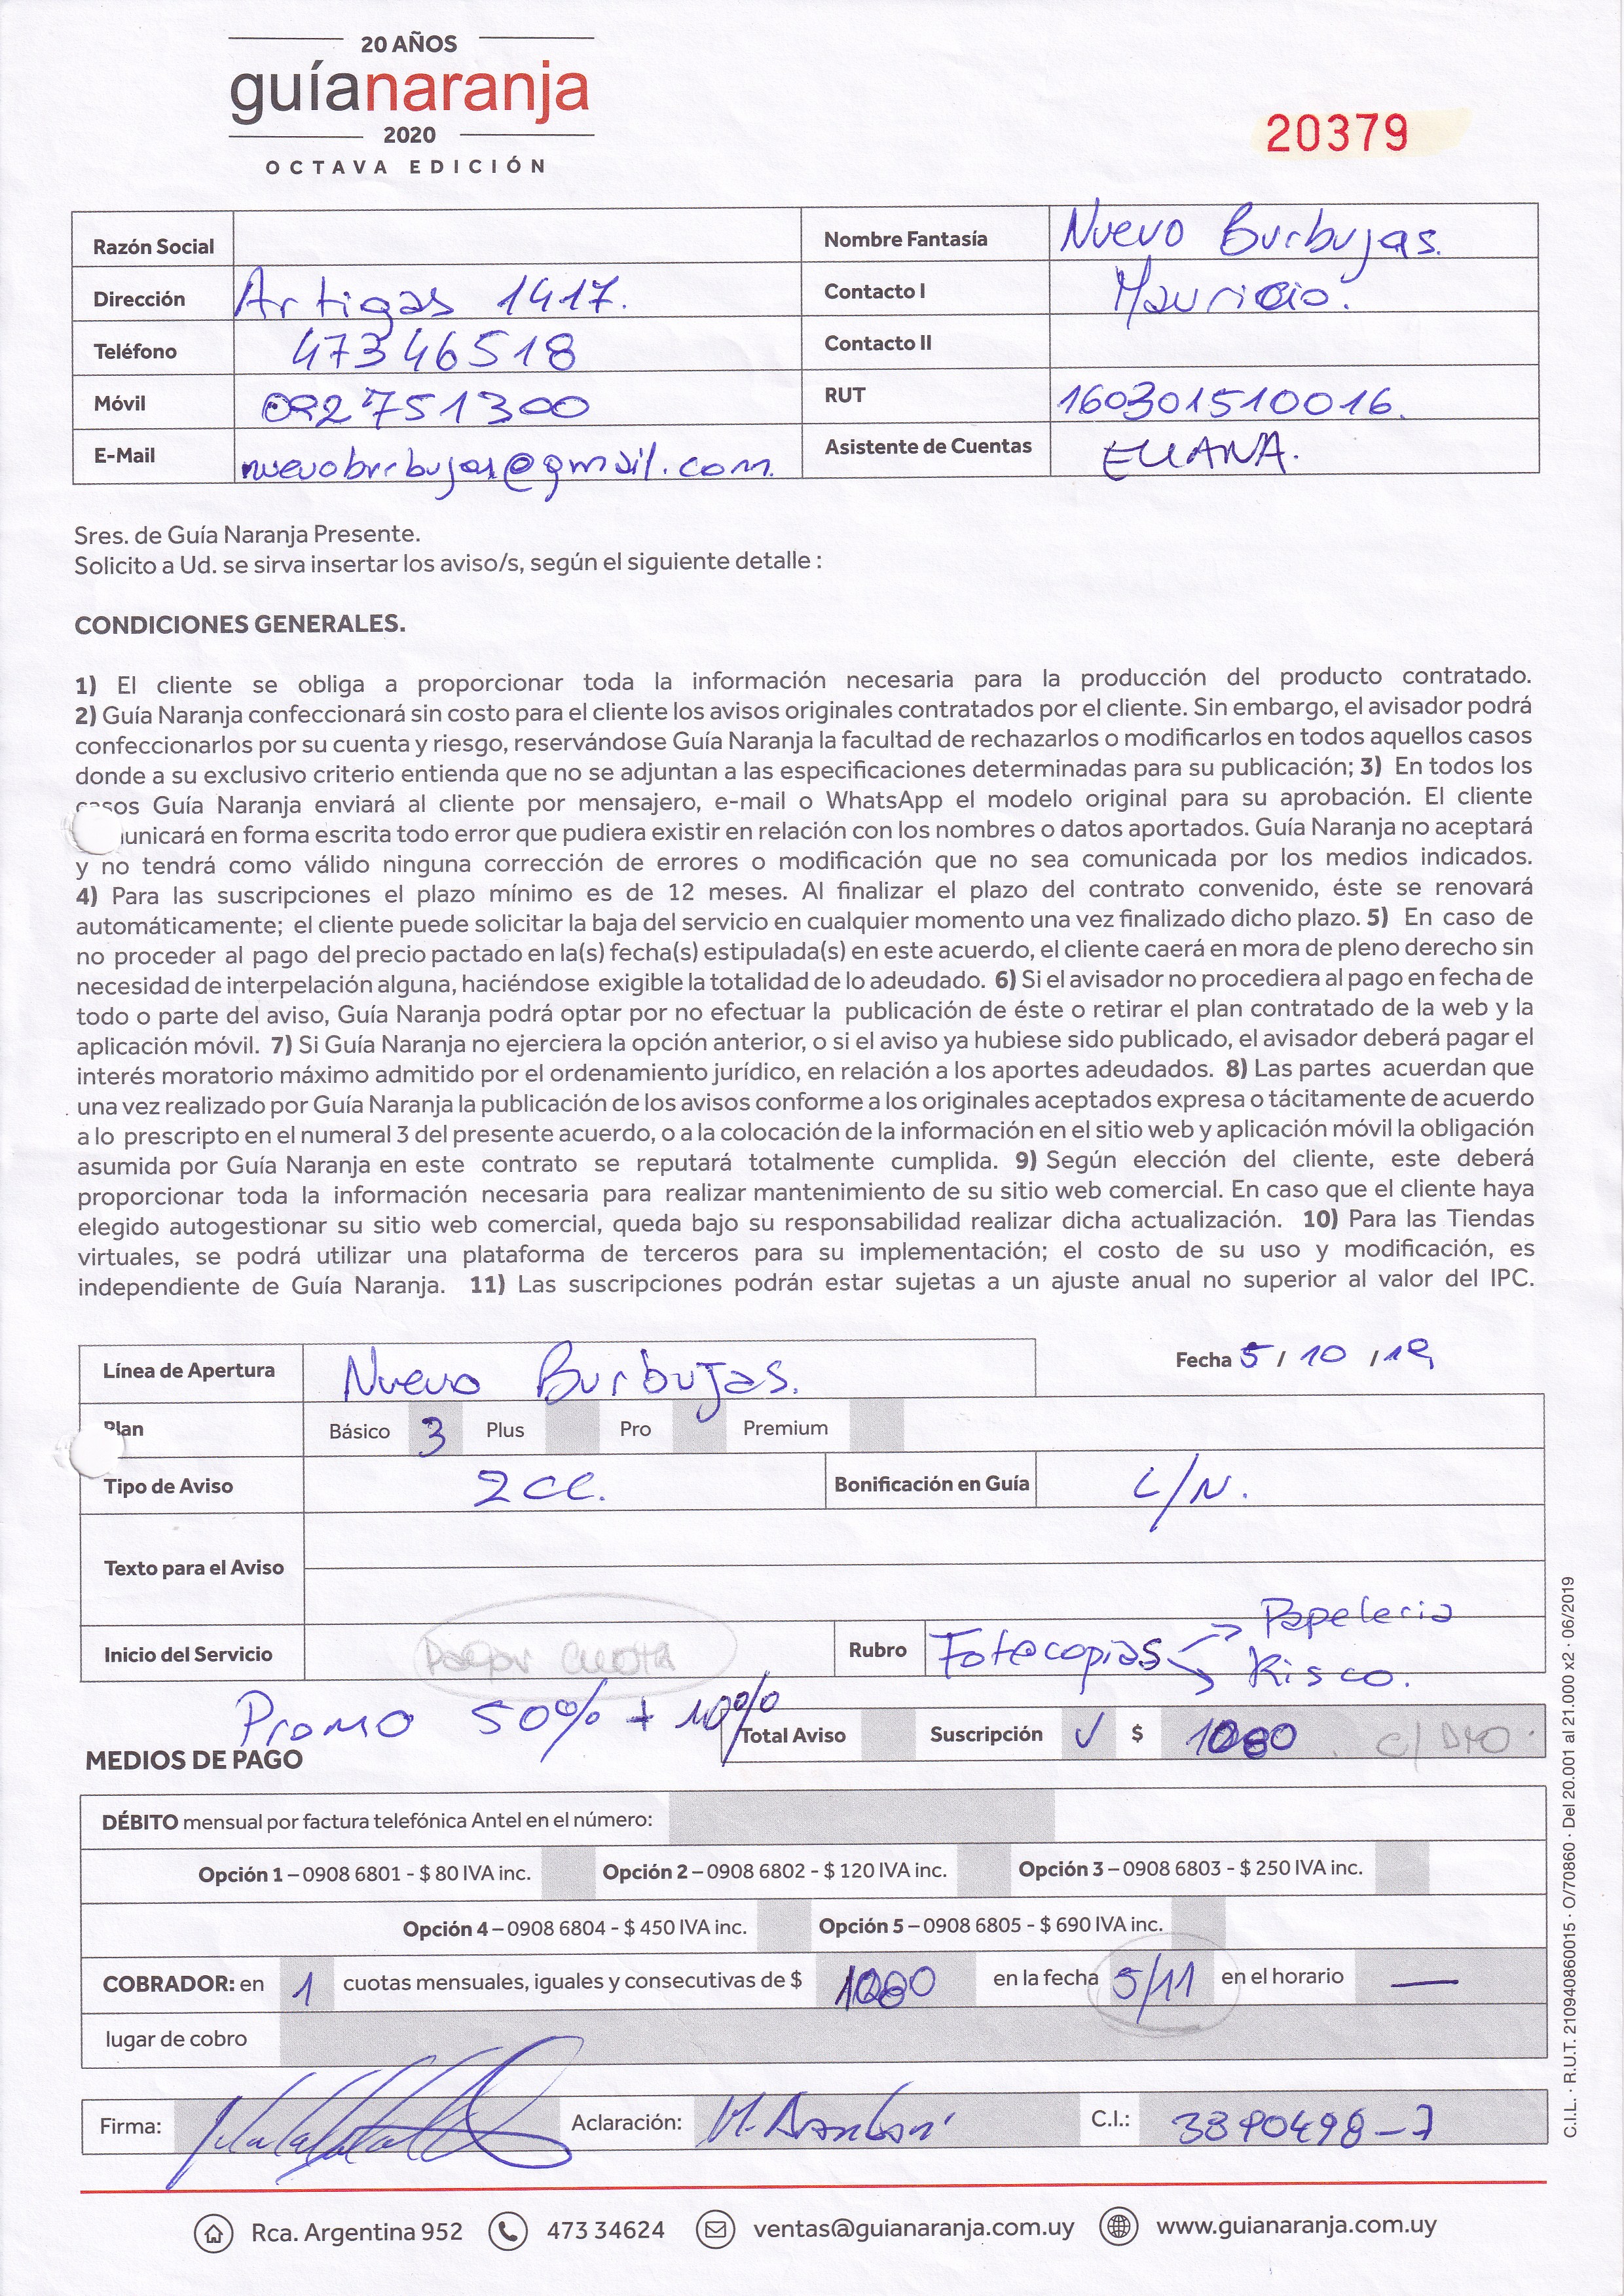 20 AÑOS
guíanaranja
2020
OCTAVA EDICIÓN
20379
Razón Social
Nombre Fantasía Nuevo Burbujas.
Dirección Artigas 1417.
Contacto I Mauricio.
Teléfono 47346518
Contacto II
Móvil 092751300
RUT 160301510016.
E-Mail nuevoburbujas@gmail.com.
Asistente de Cuentas ELIANA.
Sres. de Guía Naranja Presente.
Solicito a Ud. se sirva insertar los aviso/s, según el siguiente detalle :
CONDICIONES GENERALES.
1) El cliente se obliga a proporcionar toda la información necesaria para la producción del producto contratado.
2) Guía Naranja confeccionará sin costo para el cliente los avisos originales contratados por el cliente. Sin embargo, el avisador podrá
confeccionarlos por su cuenta y riesgo, reservándose Guía Naranja la facultad de rechazarlos o modificarlos en todos aquellos casos
donde a su exclusivo criterio entienda que no se adjuntan a las especificaciones determinadas para su publicación; 3) En todos los
casos Guía Naranja enviará al cliente por mensajero, e-mail o WhatsApp el modelo original para su aprobación. El cliente
unicará en forma escrita todo error que pudiera existir en relación con los nombres o datos aportados. Guía Naranja no aceptará
y no tendrá como válido ninguna corrección de errores o modificación que no sea comunicada por los medios indicados.
4) Para las suscripciones el plazo mínimo es de 12 meses. Al finalizar el plazo del contrato convenido, éste se renovará
automáticamente; el cliente puede solicitar la baja del servicio en cualquier momento una vez finalizado dicho plazo. 5) En caso de
no proceder al pago del precio pactado en la(s) fecha(s) estipulada(s) en este acuerdo, el cliente caerá en mora de pleno derecho sin
necesidad de interpelación alguna, haciéndose exigible la totalidad de lo adeudado. 6) Si el avisador no procediera al pago en fecha de
todo o parte del aviso, Guía Naranja podrá optar por no efectuar la publicación de éste o retirar el plan contratado de la web y la
aplicación móvil. 7) Si Guía Naranja no ejerciera la opción anterior, o si el aviso ya hubiese sido publicado, el avisador deberá pagar el
interés moratorio máximo admitido por el ordenamiento jurídico, en relación a los aportes adeudados. 8) Las partes acuerdan que
una vez realizado por Guía Naranja la publicación de los avisos conforme a los originales aceptados expresa o tácitamente de acuerdo
a lo prescripto en el numeral 3 del presente acuerdo, o a la colocación de la información en el sitio web y aplicación móvil la obligación
asumida por Guía Naranja en este contrato se reputará totalmente cumplida. 9) Según elección del cliente, este deberá
proporcionar toda la información necesaria para realizar mantenimiento de su sitio web comercial. En caso que el cliente haya
elegido autogestionar su sitio web comercial, queda bajo su responsabilidad realizar dicha actualización. 10) Para las Tiendas
virtuales, se podrá utilizar una plataforma de terceros para su implementación; el costo de su uso y modificación, es
independiente de Guía Naranja. 11) Las suscripciones podrán estar sujetas a un ajuste anual no superior al valor del IPC.
Línea de Apertura Nuevo Burbujas.
Fecha 5 / 10 / 19
Plan Básico 3 Plus Pro Premium
Tipo de Aviso 2CC. Bonificación en Guía L/N.
Texto para el Aviso
Inicio del Servicio
Rubro Fotocopias → Papeleria
→ Kisco.
Promo 50% + 10%
Total Aviso Suscripción ✓ $ 1080 . C/ DTO.
MEDIOS DE PAGO
DÉBITO mensual por factura telefónica Antel en el número:
Opción 1 – 0908 6801 - $ 80 IVA inc. Opción 2 – 0908 6802 - $ 120 IVA inc. Opción 3 – 0908 6803 - $ 250 IVA inc.
Opción 4 – 0908 6804 - $ 450 IVA inc. Opción 5 – 0908 6805 - $ 690 IVA inc.
COBRADOR: en 1 cuotas mensuales, iguales y consecutivas de $ 1080 en la fecha 5/11 en el horario —
lugar de cobro
Firma: Aclaración: C.I.: 3890498-7
Rca. Argentina 952 473 34624 ventas@guianaranja.com.uy www.guianaranja.com.uy
C.I.L. · R.U.T. 210940860015 · O/70860 · Del 20.001 al 21.000 x2 · 06/2019